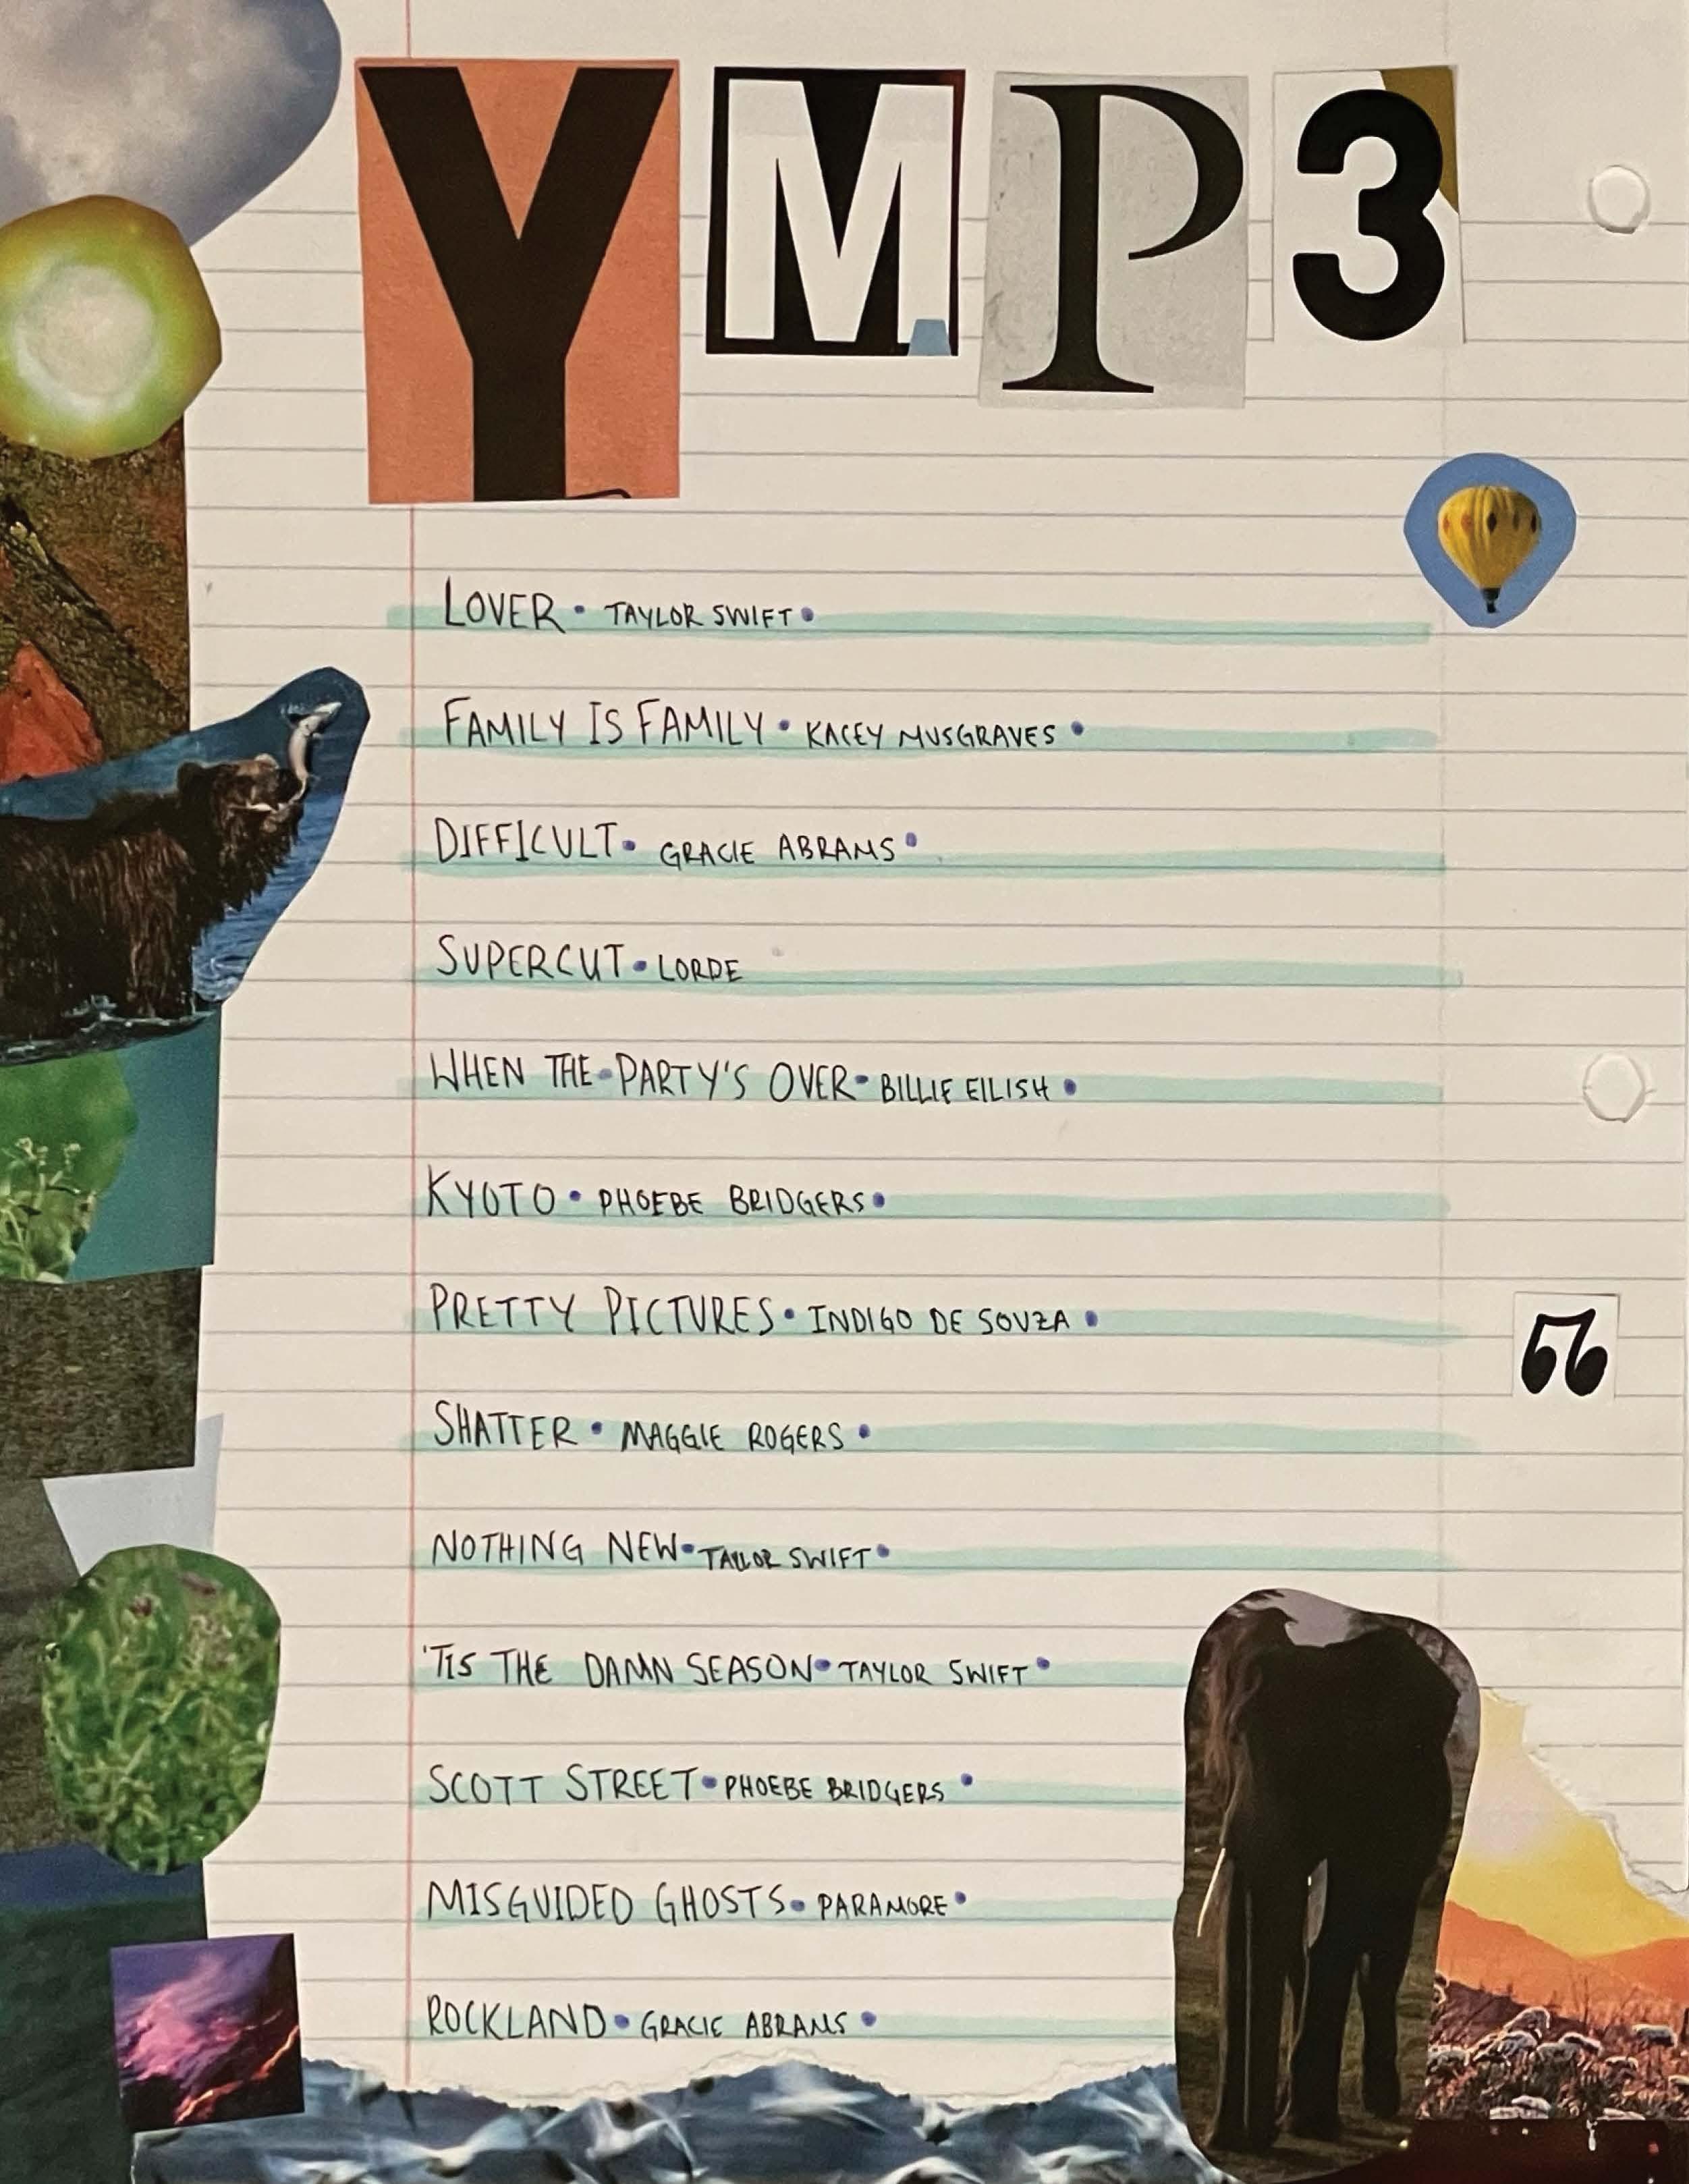 YMP3
LOVER • TAYLOR SWIFT •
FAMILY IS FAMILY • KACEY MUSGRAVES •
DIFFICULT • GRACIE ABRAMS •
SUPERCUT • LORDE
WHEN THE • PARTY'S OVER • BILLIE EILISH •
KYOTO • PHOEBE BRIDGERS •
PRETTY PICTURES • INDIGO DE SOUZA •
SHATTER • MAGGIE ROGERS •
NOTHING NEW • TAYLOR SWIFT •
'TIS THE DAMN SEASON • TAYLOR SWIFT •
SCOTT STREET • PHOEBE BRIDGERS •
MISGUIDED GHOSTS • PARAMORE •
ROCKLAND • GRACIE ABRAMS •